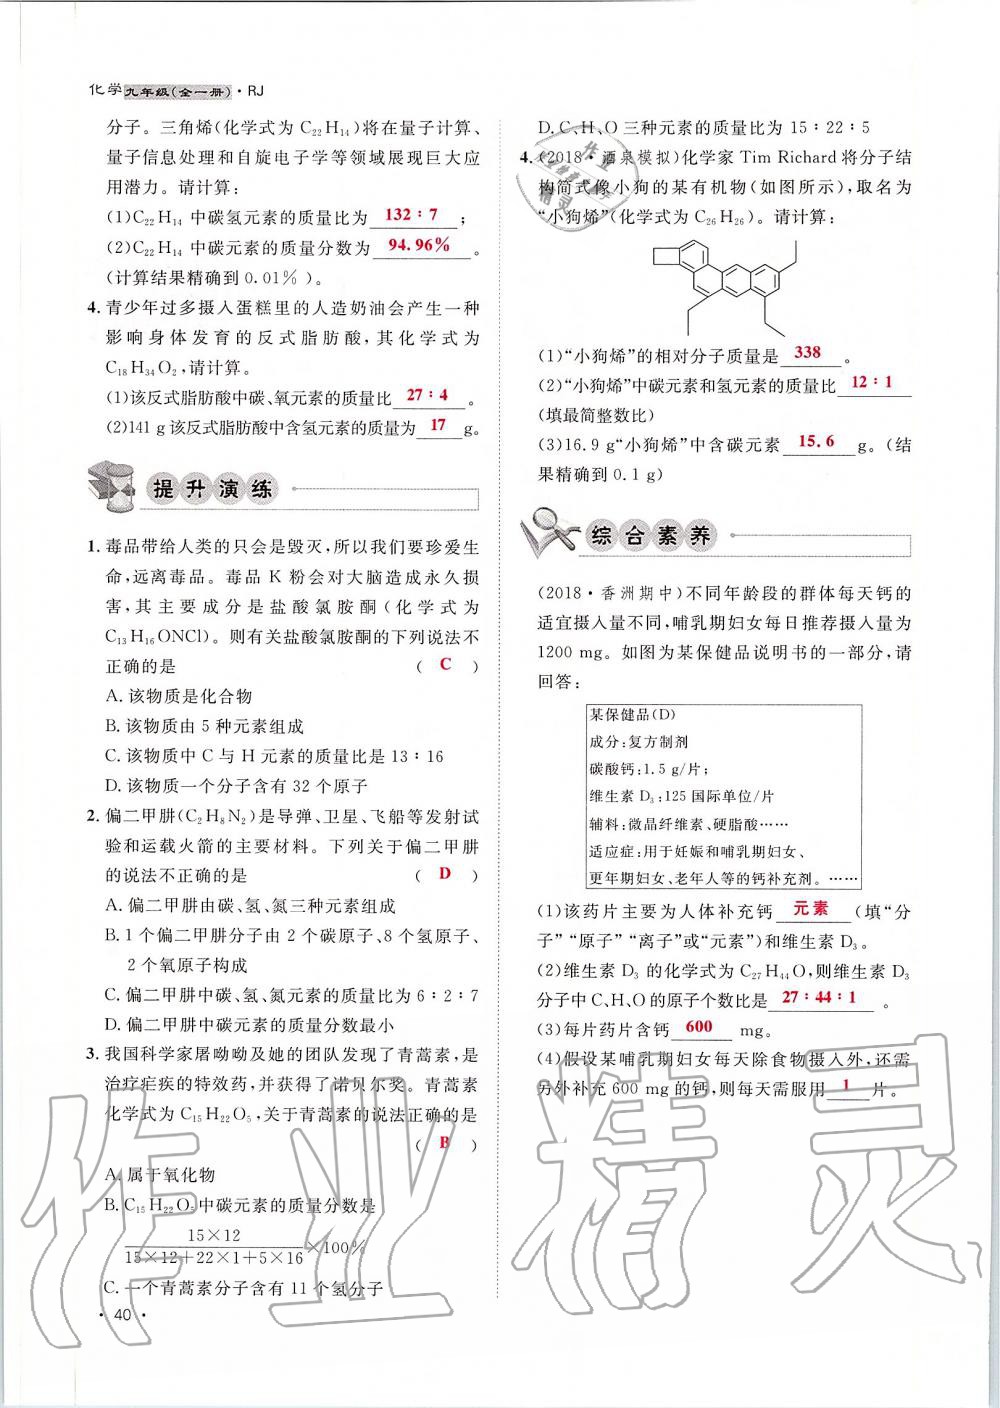 化学九年级(全一册)·RJ
分子。三角烯(化学式为 C₂₂H₁₄)将在量子计算、
量子信息处理和自旋电子学等领域展现巨大应
用潜力。请计算:
(1)C₂₂H₁₄ 中碳氢元素的质量比为 132∶7 ;
(2)C₂₂H₁₄ 中碳元素的质量分数为 94.96% 。
(计算结果精确到 0.01%)。
4. 青少年过多摄入蛋糕里的人造奶油会产生一种
影响身体发育的反式脂肪酸,其化学式为
C₁₈H₃₄O₂,请计算。
(1)该反式脂肪酸中碳、氧元素的质量比 27∶4 。
(2)141 g 该反式脂肪酸中含氢元素的质量为 17 g。
提升演练
1. 毒品带给人类的只会是毁灭,所以我们要珍爱生
命,远离毒品。毒品 K 粉会对大脑造成永久损
害,其主要成分是盐酸氯胺酮(化学式为
C₁₃H₁₆ONCl)。则有关盐酸氯胺酮的下列说法不
正确的是 ( C )
A. 该物质是化合物
B. 该物质由 5 种元素组成
C. 该物质中 C 与 H 元素的质量比是 13∶16
D. 该物质一个分子含有 32 个原子
2. 偏二甲肼(C₂H₈N₂)是导弹、卫星、飞船等发射试
验和运载火箭的主要材料。下列关于偏二甲肼
的说法不正确的是 ( D )
A. 偏二甲肼由碳、氢、氮三种元素组成
B. 1 个偏二甲肼分子由 2 个碳原子、8 个氢原子、
2 个氧原子构成
C. 偏二甲肼中碳、氢、氮元素的质量比为 6∶2∶7
D. 偏二甲肼中碳元素的质量分数最小
3. 我国科学家屠呦呦及她的团队发现了青蒿素,是
治疗疟疾的特效药,并获得了诺贝尔奖。青蒿素
化学式为 C₁₅H₂₂O₅,关于青蒿素的说法正确的是
( B )
A. 属于氧化物
B. C₁₅H₂₂O₅中碳元素的质量分数是
15×12
15×12+22×1+5×16 ×100%
C. 一个青蒿素分子含有 11 个氢分子
·40·
D. C、H、O 三种元素的质量比为 15∶22∶5
4. (2018·酒泉模拟)化学家 Tim Richard 将分子结
构简式像小狗的某有机物(如图所示),取名为
“小狗烯”(化学式为 C₂₆H₂₆)。请计算:
(1)“小狗烯”的相对分子质量是 338 。
(2)“小狗烯”中碳元素和氢元素的质量比 12∶1
(填最简整数比)
(3)16.9 g“小狗烯”中含碳元素 15.6 g。(结
果精确到 0.1 g)
综合素养
(2018·香洲期中)不同年龄段的群体每天钙的
适宜摄入量不同,哺乳期妇女每日推荐摄入量为
1200 mg。如图为某保健品说明书的一部分,请
回答:
某保健品(D)
成分:复方制剂
碳酸钙:1.5 g/片;
维生素 D₃:125 国际单位/片
辅料:微晶纤维素、硬脂酸……
适应症:用于妊娠和哺乳期妇女、
更年期妇女、老年人等的钙补充剂。……
(1)该药片主要为人体补充钙 元素 (填“分
子”“原子”“离子”或“元素”)和维生素 D₃。
(2)维生素 D₃ 的化学式为 C₂₇H₄₄O,则维生素 D₃
分子中 C、H、O 的原子个数比是 27∶44∶1 。
(3)每片药片含钙 600 mg。
(4)假设某哺乳期妇女每天除食物摄入外,还需
另外补充 600 mg 的钙,则每天需服用 1 片。
作业精灵